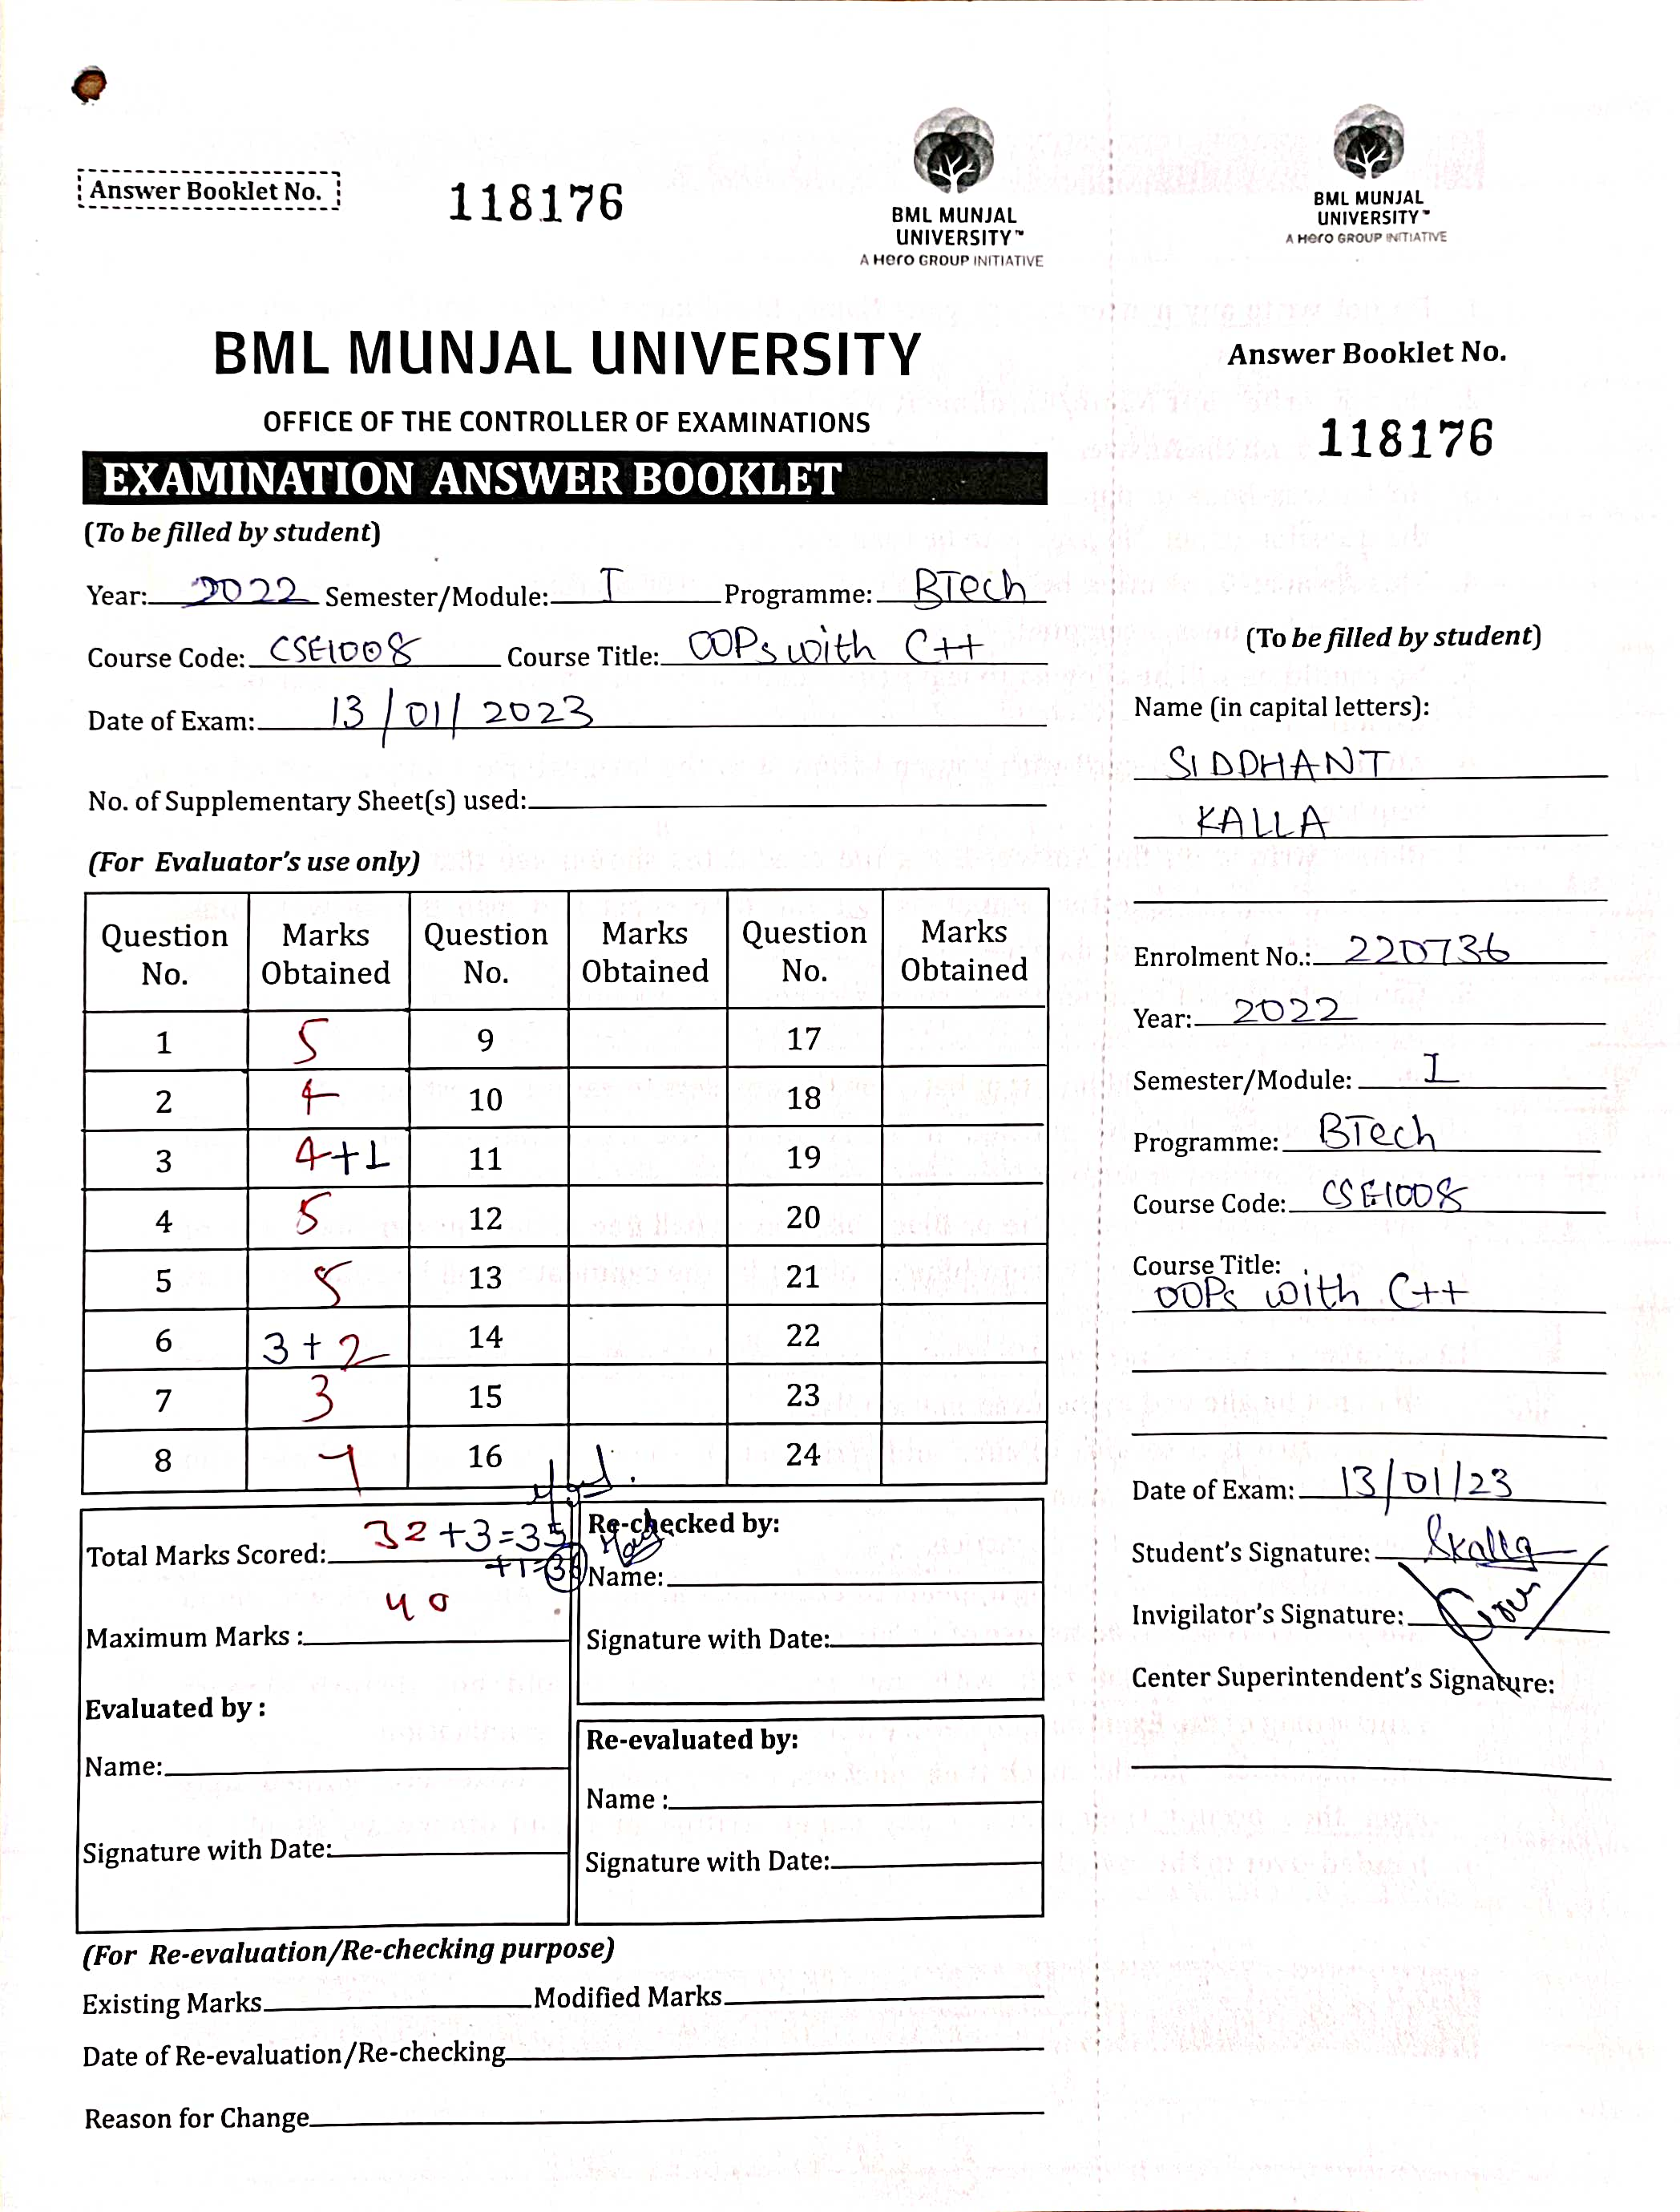 Answer Booklet No. 118176
BML MUNJAL
UNIVERSITY™
A Hero GROUP INITIATIVE
BML MUNJAL UNIVERSITY
OFFICE OF THE CONTROLLER OF EXAMINATIONS
EXAMINATION ANSWER BOOKLET
(To be filled by student)
Year: 2022 Semester/Module: I Programme: BTech
Course Code: CSE1008 Course Title: OOPs with C++
Date of Exam: 13/01/2023
No. of Supplementary Sheet(s) used:
(For Evaluator's use only)
Question No. Marks Obtained Question No. Marks Obtained Question No. Marks Obtained
1 5 9 17
2 4 10 18
3 4+1 11 19
4 5 12 20
5 5 13 21
6 3+2 14 22
7 3 15 23
8 4 16 24
Total Marks Scored: 32+3=35
+1=36
Maximum Marks : 40
Evaluated by :
Name:
Signature with Date:
Re-checked by:
Name:
Signature with Date:
Re-evaluated by:
Name :
Signature with Date:
(For Re-evaluation/Re-checking purpose)
Existing Marks Modified Marks
Date of Re-evaluation/Re-checking
Reason for Change
BML MUNJAL
UNIVERSITY™
A Hero GROUP INITIATIVE
Answer Booklet No.
118176
(To be filled by student)
Name (in capital letters):
SIDDHANT
KALLA
Enrolment No.: 220736
Year: 2022
Semester/Module: I
Programme: BTech
Course Code: CSE1008
Course Title:
OOPs with C++
Date of Exam: 13/01/23
Student's Signature: Skalla
Invigilator's Signature:
Center Superintendent's Signature: